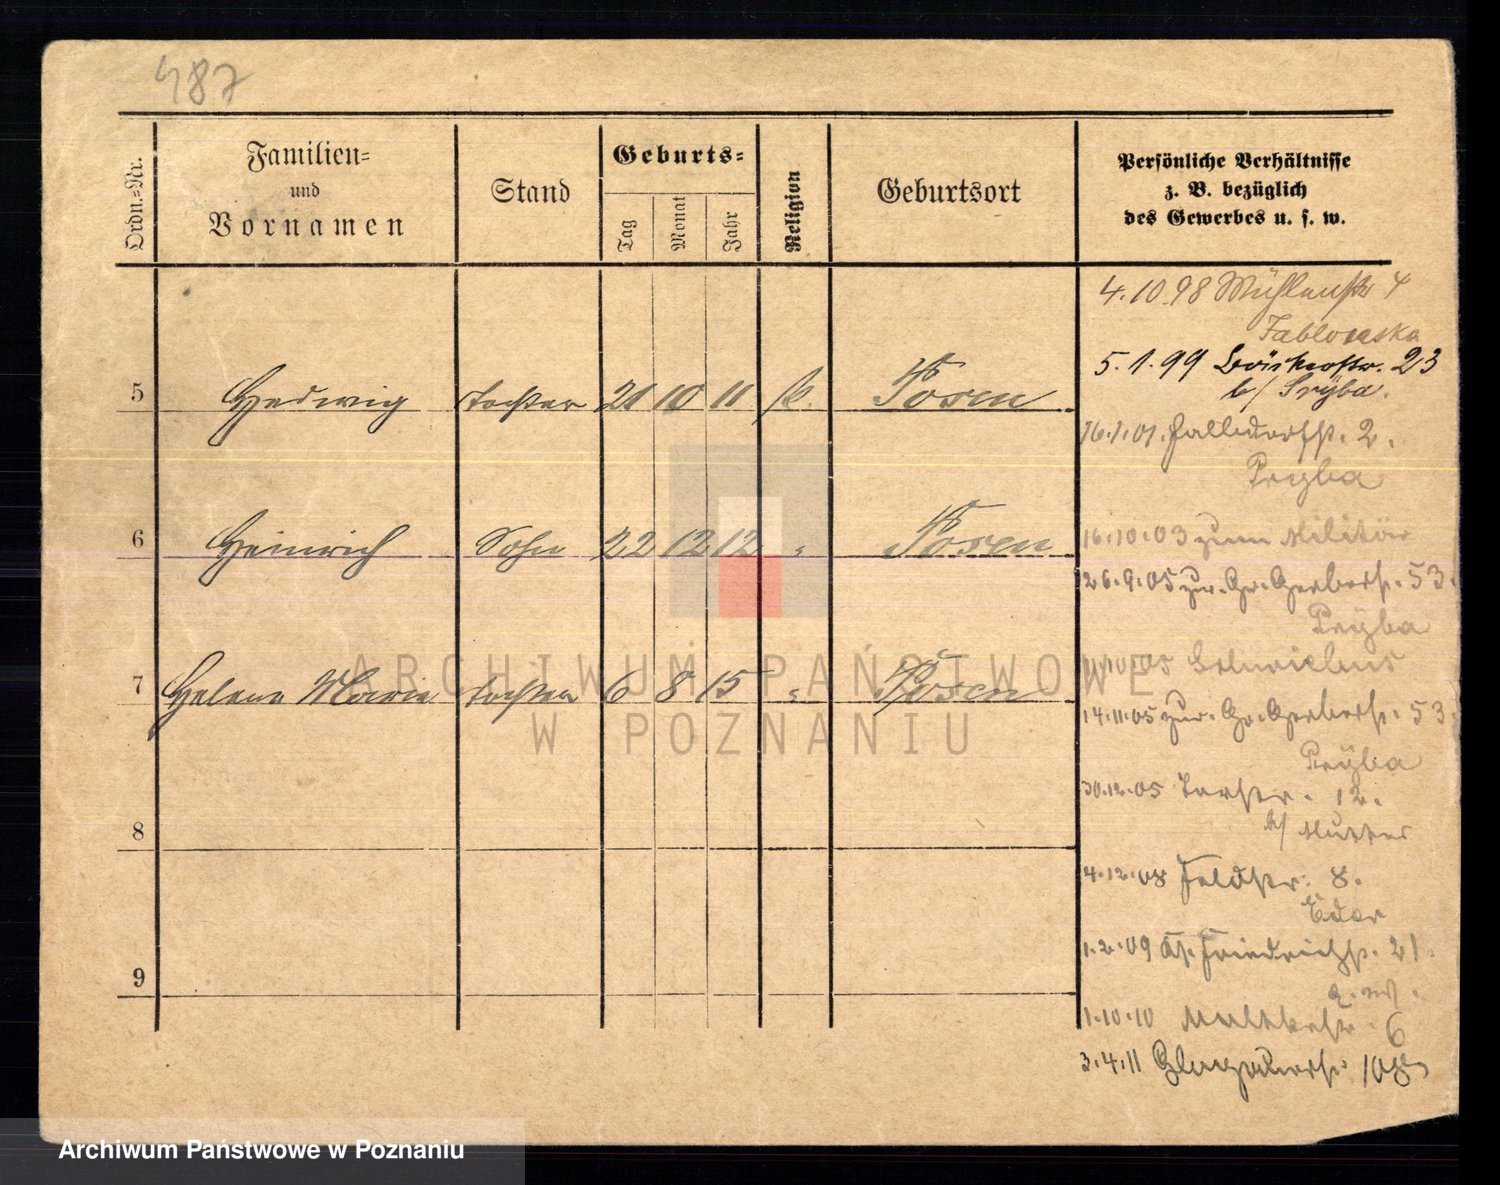 487
Ordn.=Nr.
Familien=
und
Vornamen
Stand
Geburts=
Tag
Monat
Jahr
Religion
Geburtsort
Persönliche Verhältnisse
z. B. bezüglich
des Gewerbes u. s. w.
5 Hedwig Tochter 21 10 11 k. Posen
6 Heinrich Sohn 22 12 12 " Posen
7 Helene Marie Tochter 6 8 15 " Posen
8
9
4.10.98 Mühlenstr 4
5.1.99 23
b/
16.1.01. 2.
Pryba
16.10.03 zum Militär
26.9.05 zur. Gr. Gerberstr. 53.
Pryba
11.10.05
14.11.05 zur. Gr. Gerberstr. 53.
Pryba
30.12.05 12.
b/ Mutter
4.12.08 Feldstr. 8.
1.2.09 Friedrichstr. 21.
1.10.10 6
3.4.11
ARCHIWUM PAŃSTWOWE
W POZNANIU
Archiwum Państwowe w Poznaniu